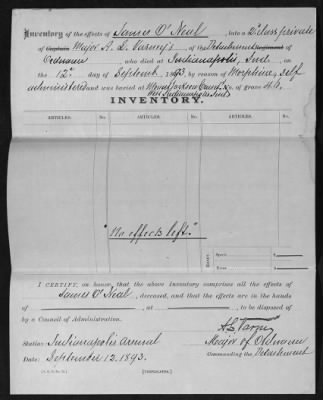 Inventory of the effects of James O'Neal, late a 2d class private
of Captain Major A. L. Varney's, of the Detachment Regiment of
Ordnance who died at Indianapolis, Ind. on
the 12th day of Septemb. 1893, by reason of Morphine, self
administered and was buried at Cemt.
West Indianapolis Ind No. of grave
INVENTORY.
ARTICLES. ARTICLES. ARTICLES. ARTICLES.
"No effects left."
I CERTIFY, on honor, that the above Inventory comprises all the effects of
James O'Neal, deceased, and that the effects are in the hands
of , at , to be disposed of
by a Council of Administration.
A L Varney
Station: Indianapolis Arsenal Major of Ordnance
Date: September 12. 1893. Commanding the Detachment